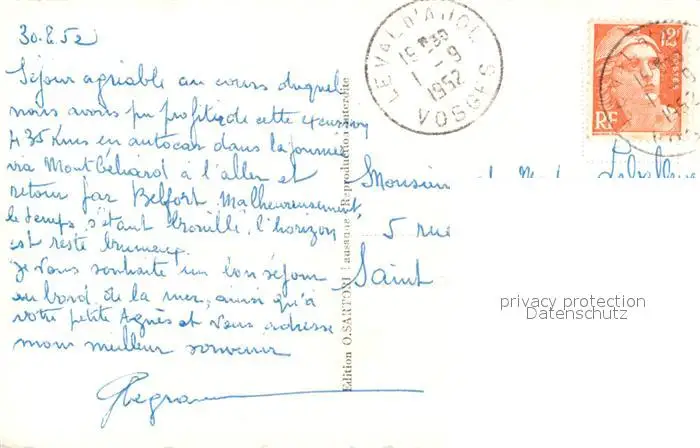 30.8.52
Séjour agréable au cours duquel
nous avons pu profiter de cette excursion
435 Kms en autocar dans la journée
via Montbéliard à l'aller et
retour par Belfort. Malheureusement,
le temps s'étant brouillé, l'horizon
est resté brumeux.
Je vous souhaite un bon séjour
au bord de la mer, ainsi qu'à
votre petite Agnès et vous adresse
mon meilleur souvenir
Edition O. SARTORI Lausanne Reproduction interdite
LE VAL D'AJOL VOSGES
1 -9
1952
12F
POSTES
RF
Monsieur et
5 rue
Saint
privacy protection
Datenschutz